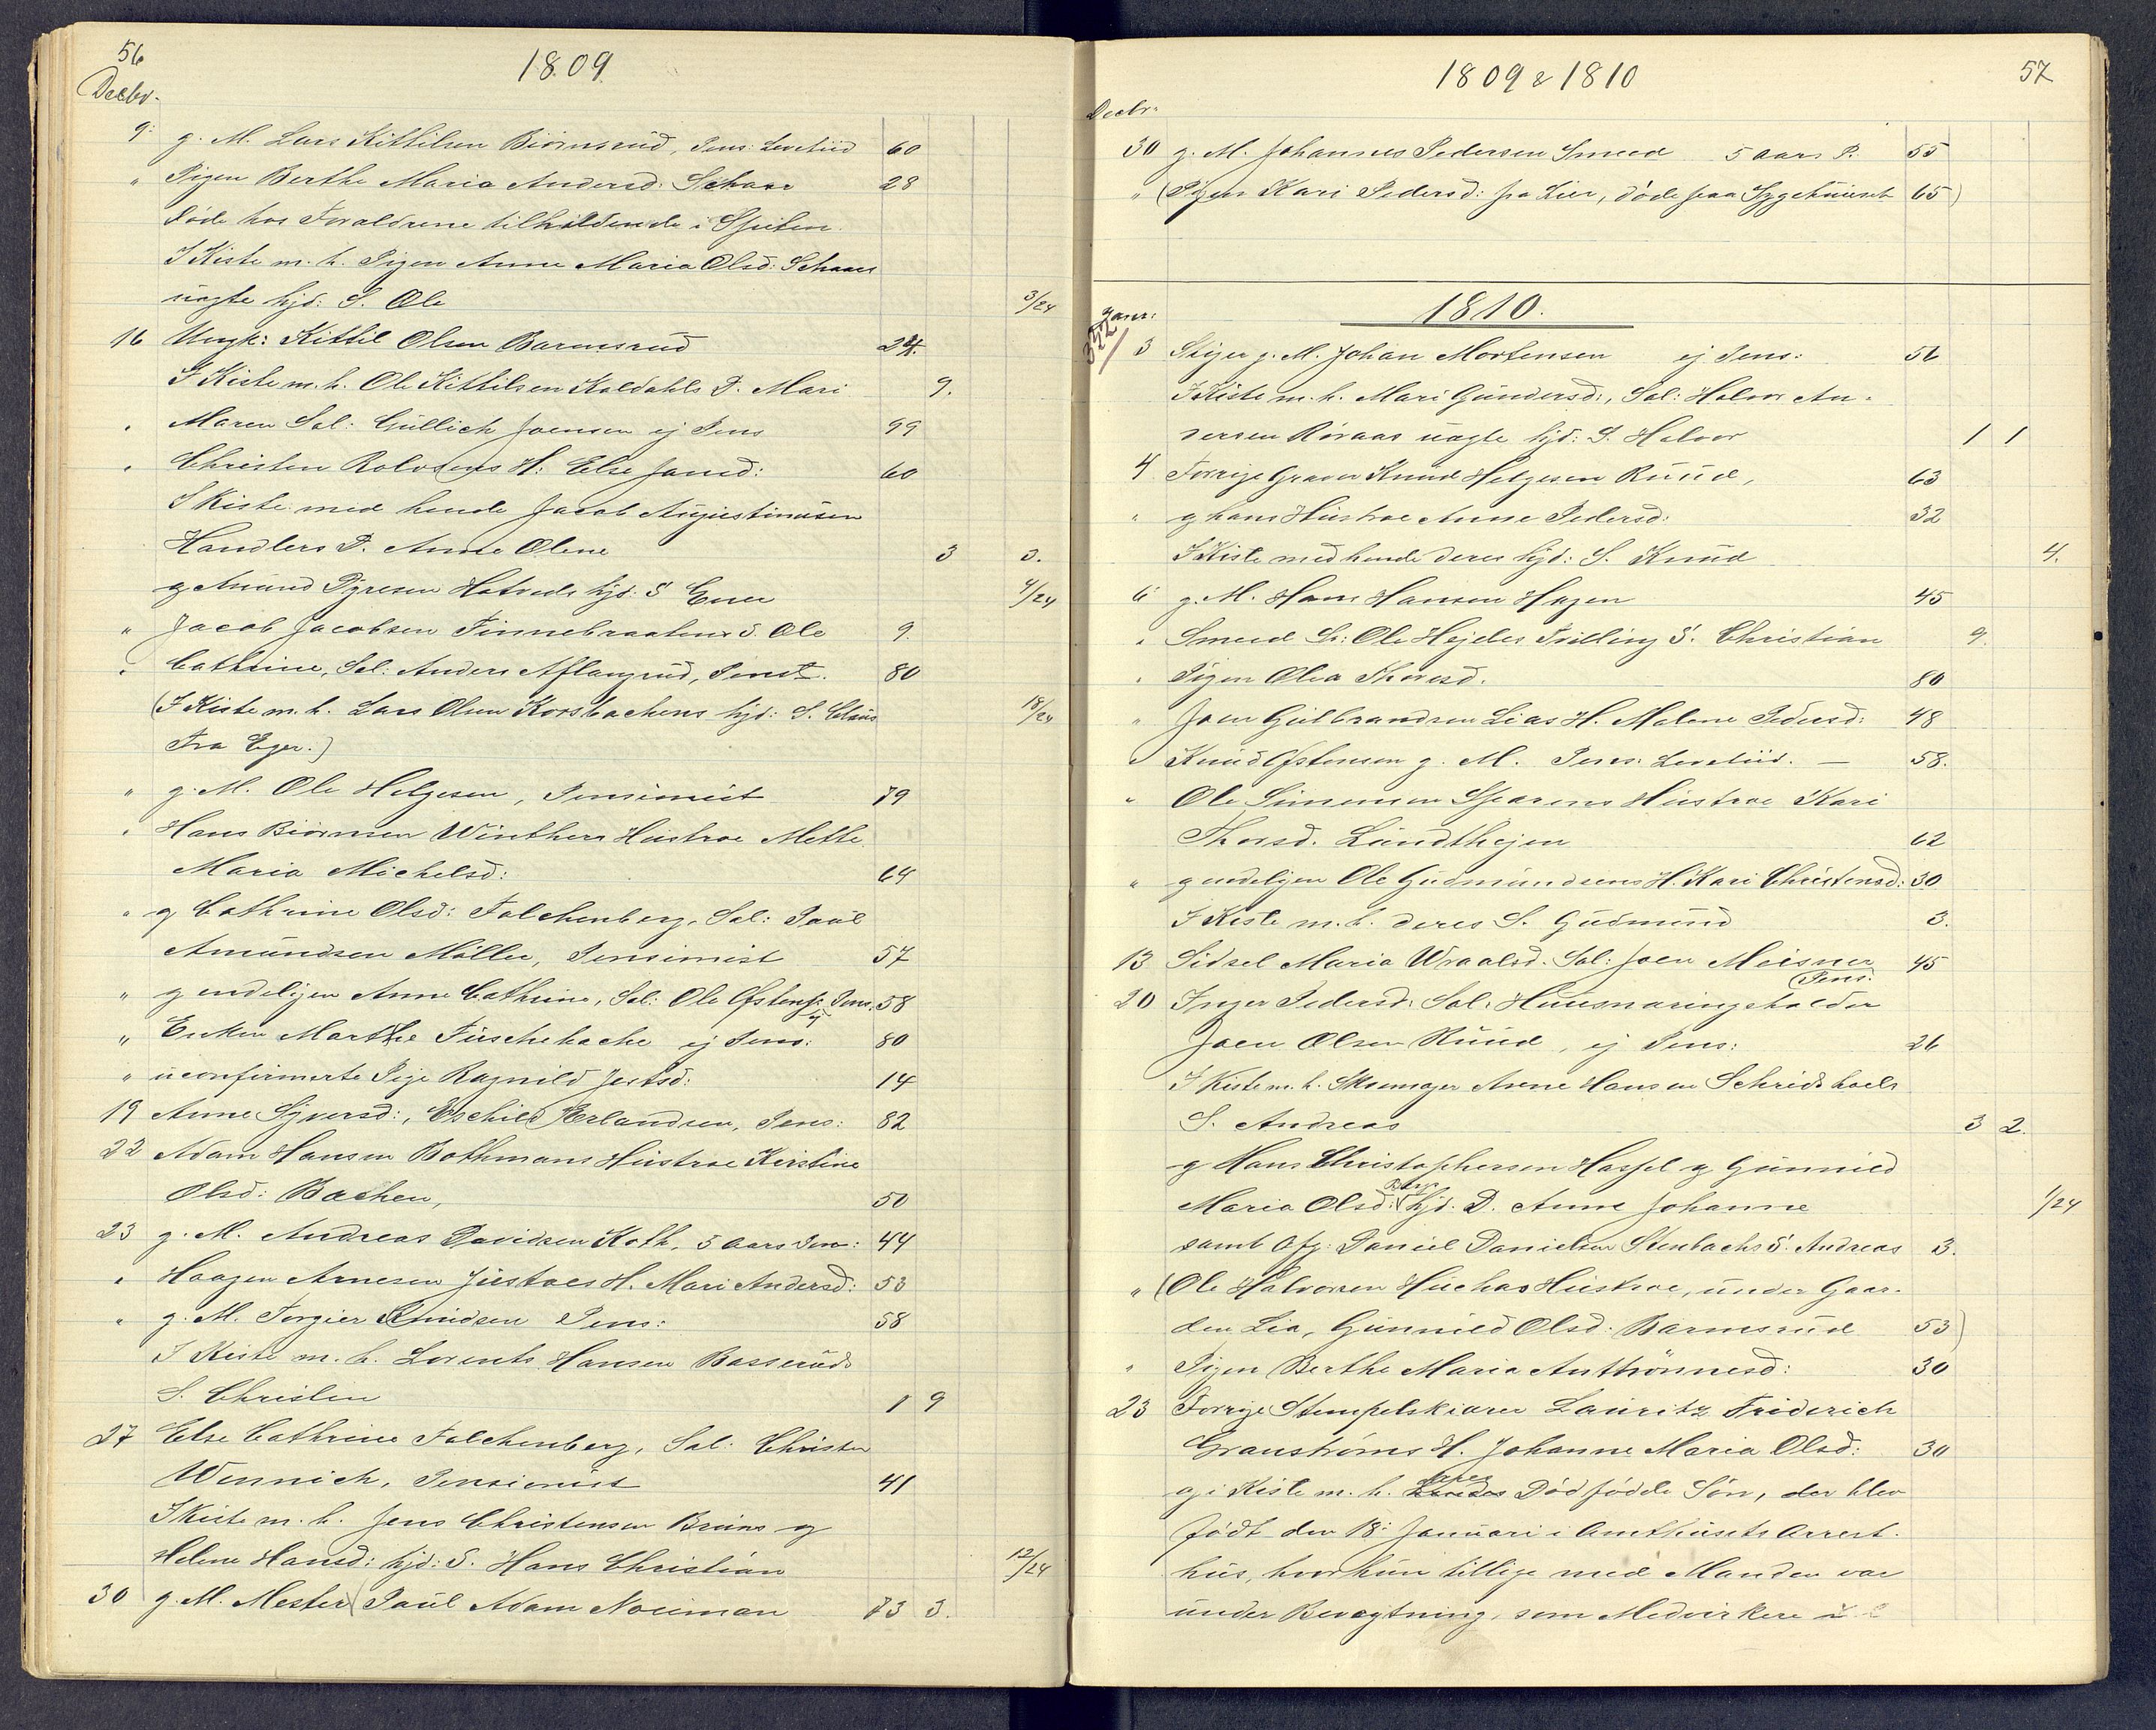 56
1809
Decbr.
9: g. M. Lars Kittilsen Biörnsrud, Pens: Levetiid 60
" Pigen Berthe Maria Andersd: Schaar 28
døde hos Forældrene tilholdende i Spiten.
I Kiste m. h. Pigen Anne Maria Olsd: Schaars
uægte hjd: S. Ole 3/24
16 Ungk: Kittil Olsen Barmsrud 24.
I Kiste m. h. Ole Kittilsen Koldahls D. Mari 9.
" Maren Sal: Gullich Joensen ej Pens 99
" Christen Rolvsens H: Else Jansd: 60
I Kiste med hende Jacob Augustinusen
Handlers D. Anne Olene 3 3.
og Amund Pyresen Hotvedt hjd: S Ener 4/24
" Jacob Jacobsen Finnebraatens S. Ole 9.
" Cathrine, Sal: Anders Aflangrud, Penst. 80
(I Kiste m. h. Lars Olsen Korsbachens hjd: S. Claus 18/24
Fra Eger.)
" g. M. Ole Helgesen, Pensionist 79
" Hans Biörnsen Winthers Hustroe Mette
Maria Michelsd: 64
" og Cathrine Olsd: Falchenberg, Sal: Paul
Amundsen Møller, Pensionist 57
" og endeligen Anne Cathrine, Sal: Ole Østensß: ej Pens. 58
" Enken Marthe Fuschebache ej Pens: 80
" uconfirmerte Pige Ragnild Jertsd: 14
19 Anne Syversd:, Eschild Erlandsen, Pens: 82
22 Adam Hansen Bothmans Hustroe Kirstine
Olsd: Bachen, 50
23 g. M. Andreas Davidsen Koth, 5 Aars Pen: 44
" Haagen Arnesen Justaes H. Mari Andersd: 53
" g. M. Torgier Knudsen Pens: 58
I Kiste m. h. Lorents Hansen Basseruds
S. Christen 1 9
27 Else Cathrine Falchenberg, Sal: Christen
Wennich, Pensionist 41
I Kiste m. h. Jens Christensen Bruns og
Helene Hansd: hjd: S. Hans Christian 12/24
30 g. M. Mester Paul Adam Noeiman 73 3.
1809 & 1810
57
Decbr:
30 g. M. Johannes Pedersen Smeed 5 Aars P. 55
" (Pigen Kari Pedersd: fra Lier, døde paa Sygehuuset 65)
1810.
Janr:
3 Stiger g. M. Johan Mortensen ej Pens: 56
I Kiste m. h. Mari Gundersd:, Sal: Halvor An-
dersen Røraas uægte hjd: S. Halvor 1 1
4 Forrige Graver Knud Helgesen Ruud, 63
" og hans Hustroe Anne Pedersd: 32
I Kiste med hende deres hjd: S. Knud 4.
6 g. M. Hans Hansen Hagen 45
" Smeed Sv: Ole Hejdes Tvilling S. Christian 9.
" Pigen Olea Thoresd. 80
" Joen Gulbrandsen Lias H. Malene Pedersd: 48
" Knud Østensen g. M. Pens: Levetiid. — 58.
" Ole Simensen Sparens Hustroe Kari
Thorsd. Lundthejen 62
" og endeligen Ole Gudmundsens H. Kari Christensd: 30
I Kiste m. h. deres S. Gudmund 3.
13 Sidsel Maria Wraalsd. Sal: Joen Meisner 45
Pens.
20 Inger Pedersd: Sal: Huusnæringsholder
Joen Olsen Ruud, ej Pens: 26
I Kiste m. h. Skomager Arne Hansen Schridshoels
S. Andreas 3 2.
og Hans Christophersen Hassel og Gunnild
Maria Olsd: hjd. D. Anne Johanne 1/24
samt Afg: Daniel Danielsen Stenbachs S. Andreas 3.
" (Ole Halvorsen Huchas Hustroe, under Gaar-
den Lia, Gunnild Olsd: Barmsrud 53)
" Pigen Berthe Maria Anthönnesd: 30
23 Forrige Stempelskiærer Lauritz Friderich
Granströms H. Johanne Maria Olsd: 30
og i Kiste m. h. Dødfødde Søn, der blev
født den 18: Januari i Amthusets Arrest-
huus, hvor hun tillige med Manden var
under Bevogtning, som Medvirkere